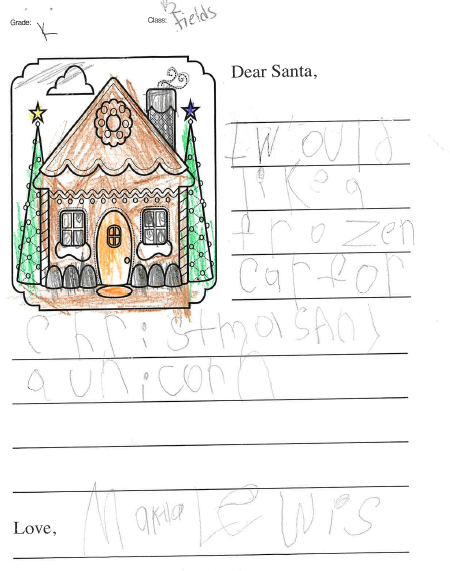 Grade: K
Class: Fields
Dear Santa,
I would
like a
frozen
car for
christmas and
a unicorn
Love, Makila LEwis